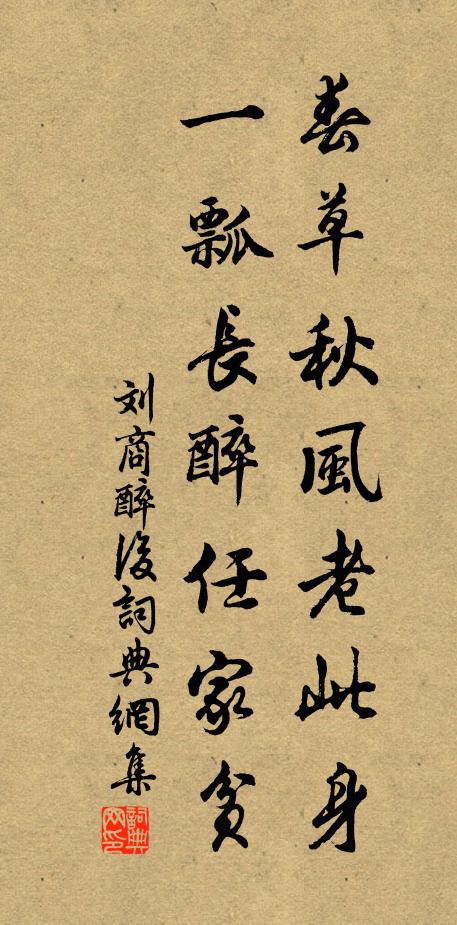 春草秋風老此身
一瓢長醉任家貧
刘商醉後詞典網集
詞典网印